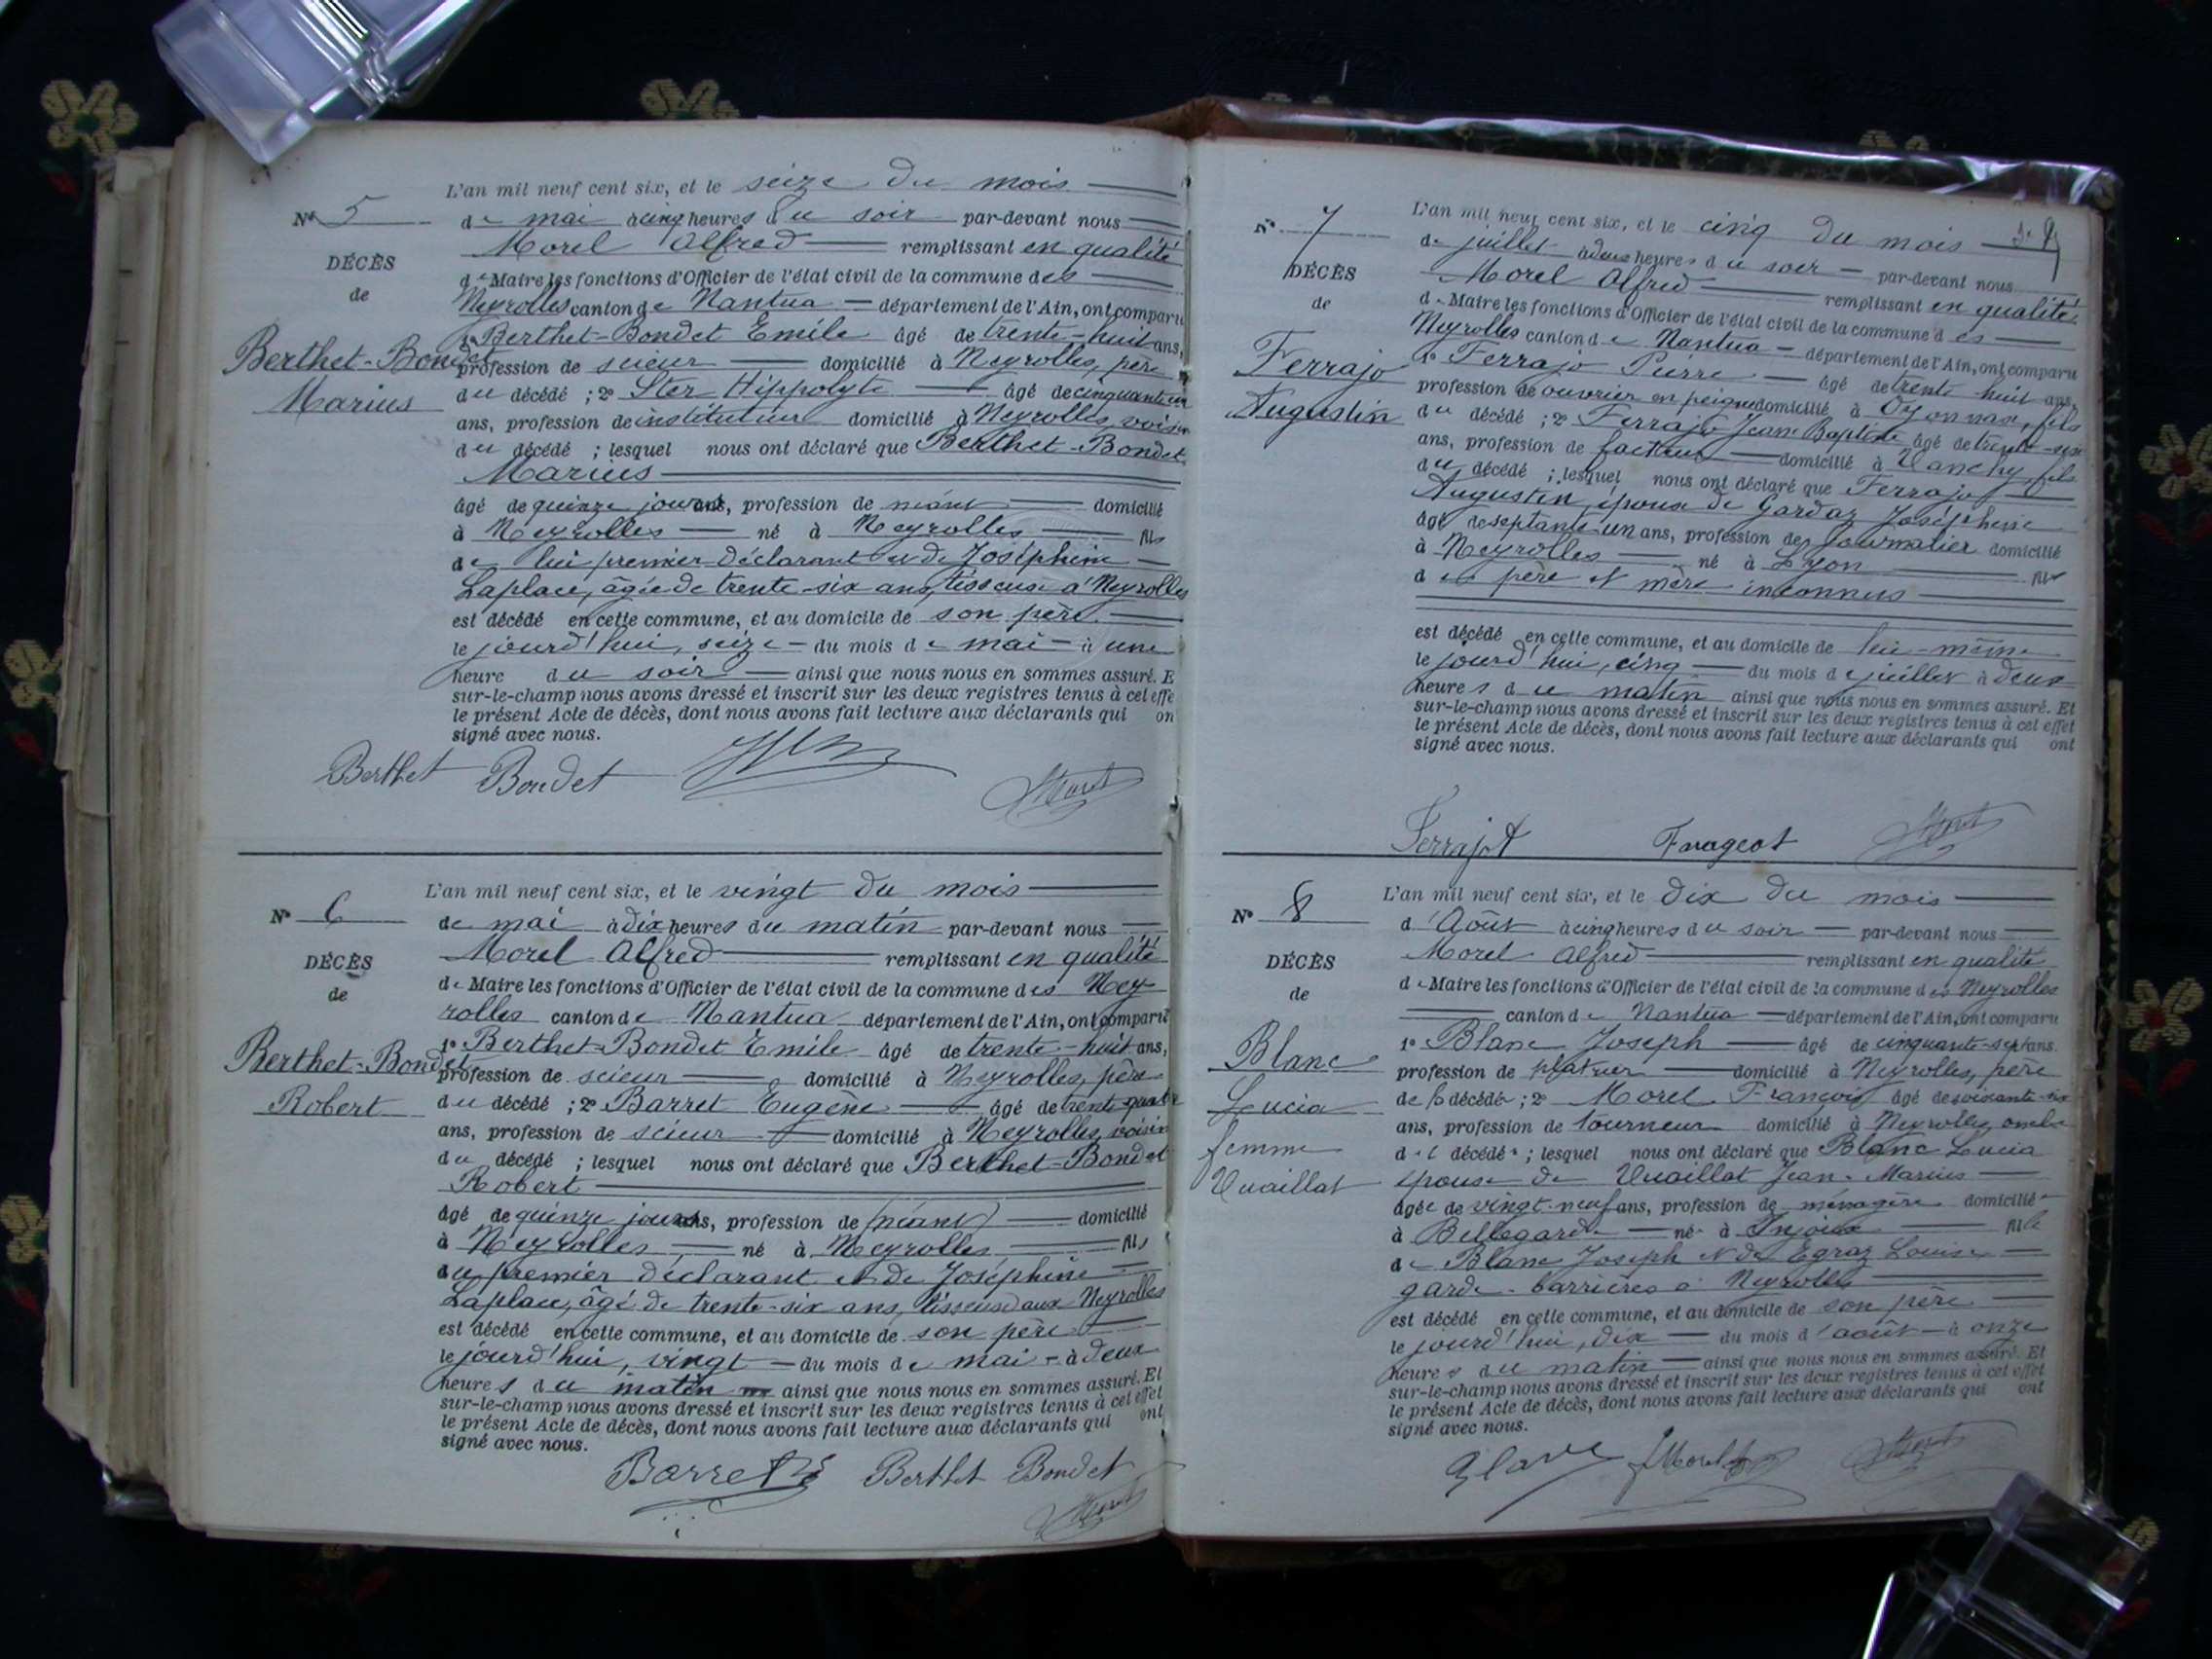 L'an mil neuf cent six, et le seize du mois
N° 5
de mai à cinq heures du soir par-devant nous
Morel Alfred remplissant en qualité
DÉCÈS
de Maire les fonctions d'Officier de l'état civil de la commune des
de
Neyrolles canton de Nantua département de l'Ain, ont comparu
1° Berthet-Bondet Emile âgé de trente-huit ans,
Berthet-Bondet
profession de scieur domicilié à Neyrolles, père
Marius
du décédé ; 2° Ster Hippolyte âgé de cinquante un
ans, profession de instituteur domicilié à Neyrolles, voisin
du décédé ; lesquel nous ont déclaré que Berthet-Bondet
Marius
âgé de quinze jours, profession de néant domicilié
à Neyrolles né à Neyrolles fils
de lui premier déclarant et de Joséphine
Laplace, âgée de trente-six ans, tisseuse à Neyrolles
est décédé en cette commune, et au domicile de son père
le jourd'hui, seize du mois de mai à une
heure du soir ainsi que nous nous en sommes assuré. E
sur-le-champ nous avons dressé et inscrit sur les deux registres tenus à cet effe
le présent Acte de décès, dont nous avons fait lecture aux déclarants qui on
signé avec nous.
Berthet Bondet Morel
L'an mil neuf cent six, et le vingt du mois
N° 6
de mai à dix heures du matin par-devant nous
Morel Alfred remplissant en qualité
DÉCÈS
de Maire les fonctions d'Officier de l'état civil de la commune des Ney
de
rolles canton de Nantua département de l'Ain, ont comparu
1° Berthet-Bondet Emile âgé de trente-huit ans,
Berthet-Bondet
profession de scieur domicilié à Neyrolles, père
Robert
du décédé ; 2° Barret Eugène âgé de trente quatre
ans, profession de scieur domicilié à Neyrolles, voisin
du décédé ; lesquel nous ont déclaré que Berthet-Bondet
Robert
âgé de quinze jours, profession de (néant) domicilié
à Neyrolles né à Neyrolles fils
du premier déclarant et de Joséphine
Laplace, âgé de trente-six ans, tisseuse aux Neyrolles
est décédé en cette commune, et au domicile de son père
le jourd'hui, vingt du mois de mai à deux
heures du matin ainsi que nous nous en sommes assuré. Et
sur-le-champ nous avons dressé et inscrit sur les deux registres tenus à cet effet
le présent Acte de décès, dont nous avons fait lecture aux déclarants qui ont
signé avec nous.
Barret Berthet Bondet
Morel
L'an mil neuf cent six, et le cinq du mois
N° 7
de juillet à deux heures du soir par-devant nous
Morel Alfred remplissant en qualité
DÉCÈS
de Maire les fonctions d'Officier de l'état civil de la commune des
de
Neyrolles canton de Nantua département de l'Ain, ont comparu
1° Ferrajo Pierre âgé de trente-huit ans,
Ferrajo
profession de ouvrier en peigne domicilié à Oyonnax, fils
Augustin
du décédé ; 2° Ferrajo Jean Baptiste âgé de trente-six
ans, profession de facteur domicilié à Vanchy, fils
du décédé ; lesquel nous ont déclaré que Ferrajo
Augustin, époux de Gardaz Joséphine
âgé de septante-un ans, profession de journalier domicilié
à Neyrolles né à Lyon fils
des père et mère inconnus
est décédé en cette commune, et au domicile de lui-même
le jourd'hui, cinq du mois de juillet à deux
heures du matin ainsi que nous nous en sommes assuré. Et
sur-le-champ nous avons dressé et inscrit sur les deux registres tenus à cet effet
le présent Acte de décès, dont nous avons fait lecture aux déclarants qui ont
signé avec nous.
Ferrajot Farageot Morel
L'an mil neuf cent six, et le dix du mois
N° 8
d'Août à cinq heures du soir par-devant nous
Morel Alfred remplissant en qualité
DÉCÈS
de Maire les fonctions d'Officier de l'état civil de la commune des Neyrolles
de
canton de Nantua département de l'Ain, ont comparu
1° Blanc Joseph âgé de cinquante-sept ans.
Blanc
profession de plâtrier domicilié à Neyrolles, père
Lucia
de la décédée ; 2° Morel François âgé de soixante-six
ans, profession de tourneur domicilié à Neyrolles, oncle
femme
de la décédée ; lesquel nous ont déclaré que Blanc Lucia
Vuaillat
épouse de Vuaillat Jean-Marius
âgée de vingt-neuf ans, profession de ménagère domiciliée
à Bellegarde née à Injoux fille
de Blanc Joseph et de Egraz Louise
garde-barrières à Neyrolles
est décédé en cette commune, et au domicile de son père
le jourd'hui, dix du mois d'août à onze
heures du matin ainsi que nous nous en sommes assuré. Et
sur-le-champ nous avons dressé et inscrit sur les deux registres tenus à cet effet
le présent Acte de décès, dont nous avons fait lecture aux déclarants qui ont
signé avec nous.
Blanc Morel Morel